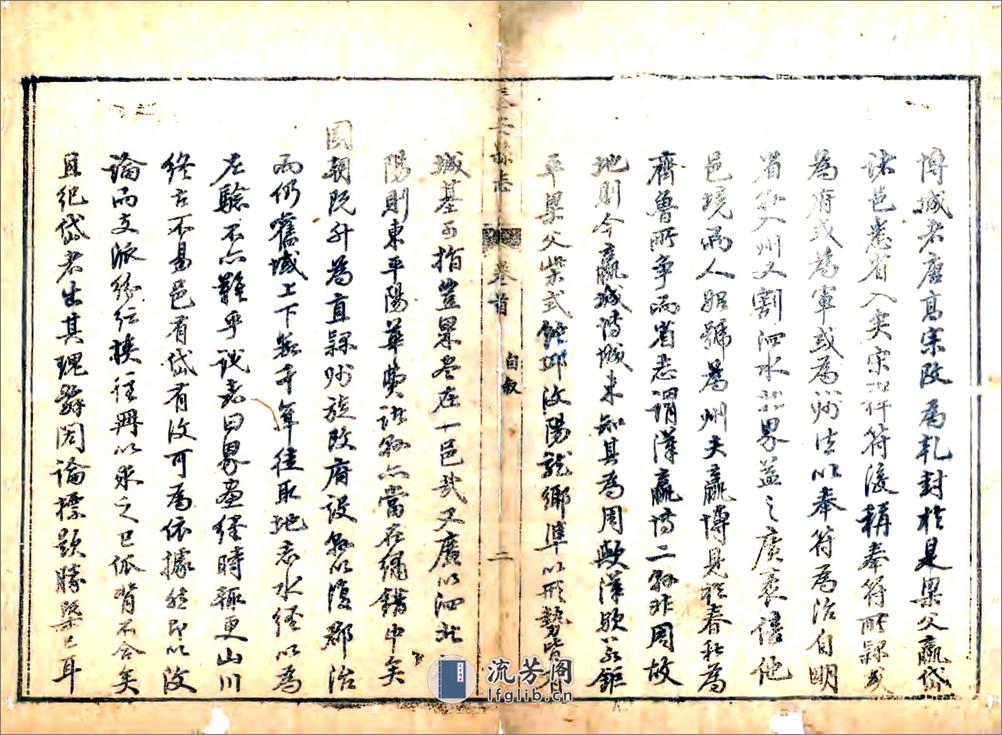 博城者唐高宗改為乾封於是梁父嬴岱
諸邑悉省入矣宋祥符後稱奉符所隸或
為府或為軍或為州法以奉符為治自明
省入州又割泗水北界益之廣袤倍他
邑境而人姑號為州夫嬴博見於春秋為
齊魯所爭而省志謂漢嬴博二縣非周故
地則今嬴城博城未知其為周歟漢歟若鉅
平梁父柴式鉏邱汶陽龍鄉準以形勢皆
城基可指豈果盡在一邑哉又廣以泗北
陽則東平陽華費諸縣亦當在繡錯中矣
國朝既升為直隸州旋改府設縣以復郡治
而仍舊域上下數千年往取地志水經以為
左驗不亦難乎說者曰界畫經時輒更山川
終古不易邑有岱有汶可為依據然即以汶
論而支派紛紜摸往冊以求之已依背不合矣
且紀岱者出其瑰辭閎論標題勝槩已耳
泰安縣志
卷首
自敘
二
流芳阁
lfglib.cn